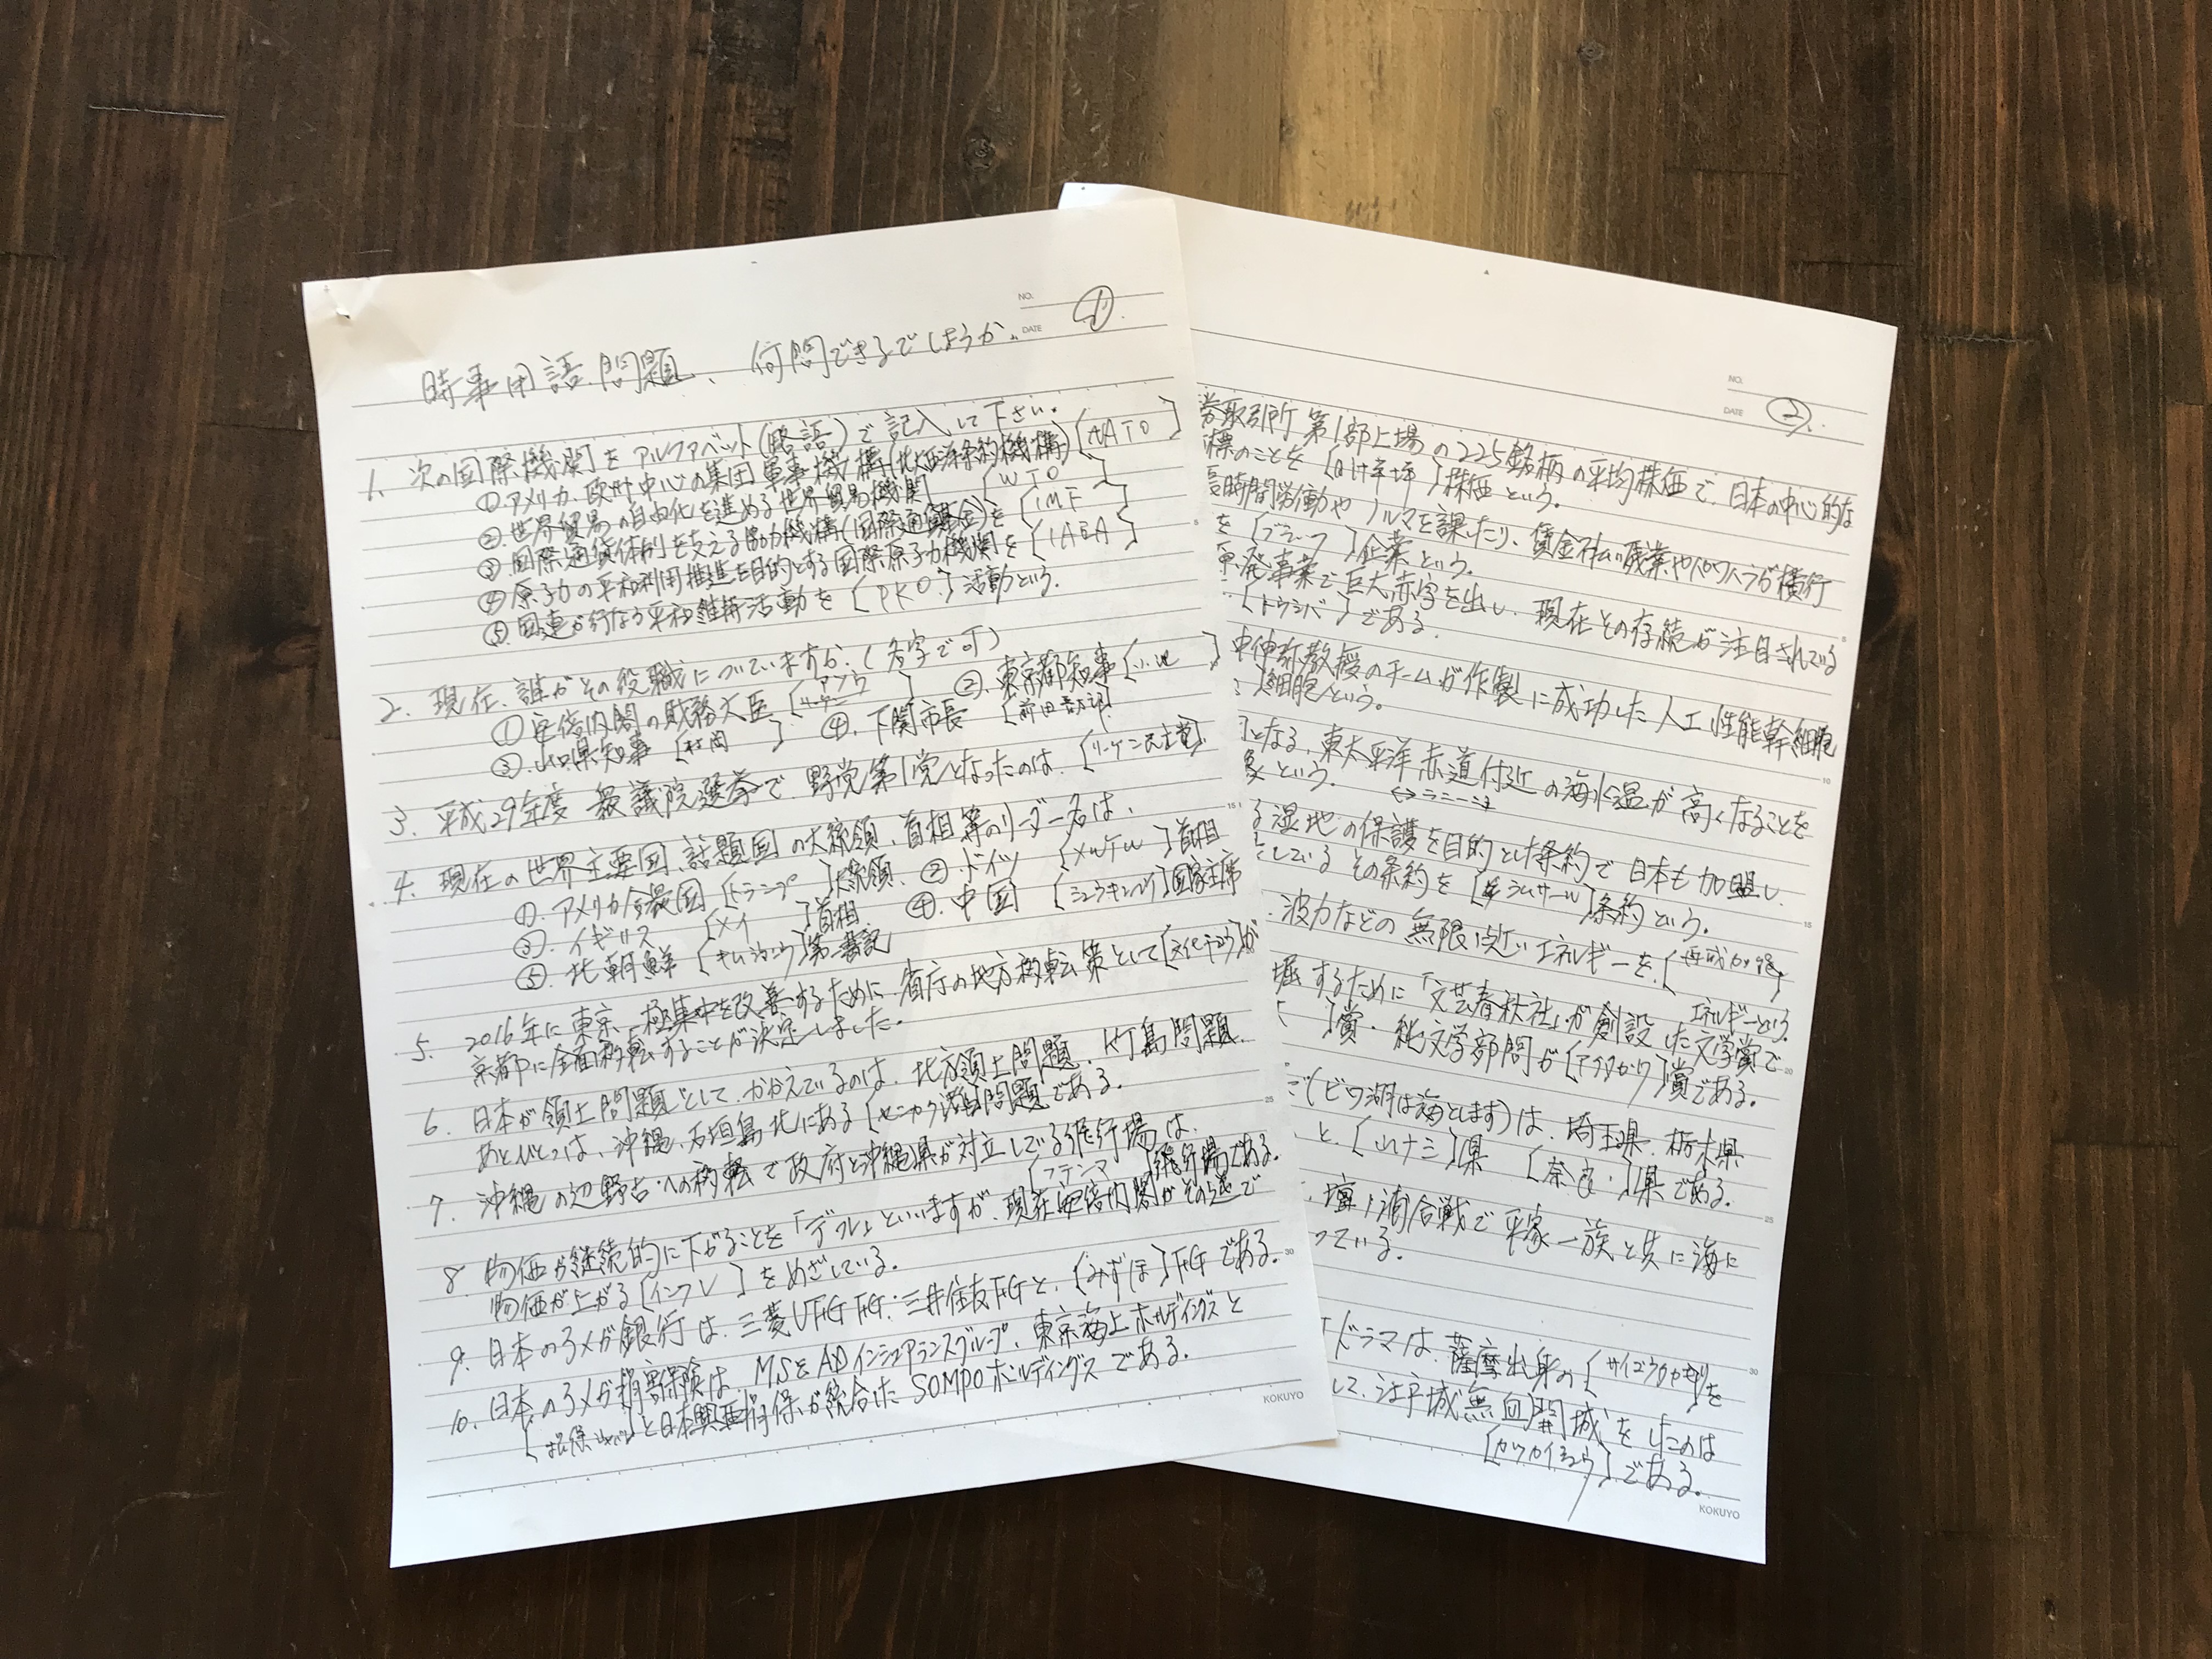 NO.
DATE
①
時事用語問題、何問できるでしょうか。
1. 次の国際機関をアルファベット(略語)で記入して下さい。
①アメリカ、欧州中心の集団軍事機構(北大西洋条約機構)[NATO]
②世界貿易の自由化を進める世界貿易機関 [WTO]
③国際通貨体制を支える協力機構(国際通貨基金)を[IMF]
④原子力の平和利用推進を目的とする国際原子力機関を[IAEA]
⑤国連が行なう平和維持活動を[PKO]活動という。
2. 現在、誰がその役職についていますか。(名字で可)
①安倍内閣の財務大臣[アソウ] ②東京都知事[小池]
③山口県知事[村岡] ④下関市長[前田晋太郎]
3. 平成29年度衆議院選挙で野党第1党となったのは、[リッケン民主党]
4. 現在の世界主要国、話題国の大統領、首相等のリーダー名は、
①アメリカ合衆国[トランプ]大統領、②ドイツ[メルケル]首相
③イギリス[メイ]首相 ④中国[シュウキンペイ]国家主席
⑤北朝鮮[キムジョンウン]第一書記
5. 2016年に東京一極集中を改善するために、省庁の地方移転策として[文化チョウ]が
京都に全面移転することが決定しました。
6. 日本が領土問題としてかかえているのは、北方領土問題、竹島問題、
あとひとつは、沖縄、石垣島北にある[センカク諸島]問題である。
7. 沖縄の辺野古への移転で政府と沖縄県が対立している飛行場は、
[フテンマ]飛行場である。
8. 物価が継続的に下がることを「デフレ」といいますが、現在安倍内閣がその逆で
物価が上がる[インフレ]をめざしている。
9. 日本の3メガ銀行は、三菱UFJFG、三井住友FGと、[みずほ]FGである。
10. 日本の3メガ損害保険は MS&ADインシュアランスグループ、東京海上ホールディングスと
[損保ジャパン]と日本興亜損保が統合したSOMPOホールディングスである。
KOKUYO
NO.
DATE
②
券取引所第1部上場の225銘柄の平均株価で、日本の中心的な
標のことを[日け平均]株価という。
長時間労働やノルマを課したり、賃金不払い残業やパワハラが横行
を[ブラック]企業という。
原発事業で巨大赤字を出し、現在その存続が注目されている
[トウシバ]である。
中伸弥教授のチームが作製に成功した人工性能幹細胞
]細胞という。
となる、東太平洋赤道付近の海水温が高くなることを
象という。 ↔ラニーニャ
る湿地の保護を目的とした条約で日本も加盟し、
している その条約を[ラムサール]条約という。
波力などの無限に近いエネルギーを[再生可能]
エネルギーという。
掘するために「文芸春秋社」が創設した文学賞で
[ ]賞・純文学部門が[アクタガワ]賞である。
(ビワ湖は海とします)は、埼玉県、栃木県
と、[山ナシ]県 [奈良]県である。
壇ノ浦合戦で平家一族と共に海に
っている。
ドラマは、薩摩出身の[サイゴウタカモリ]を
して、江戸城無血開城をしたのは
[カツカイシュウ]である。
KOKUYO